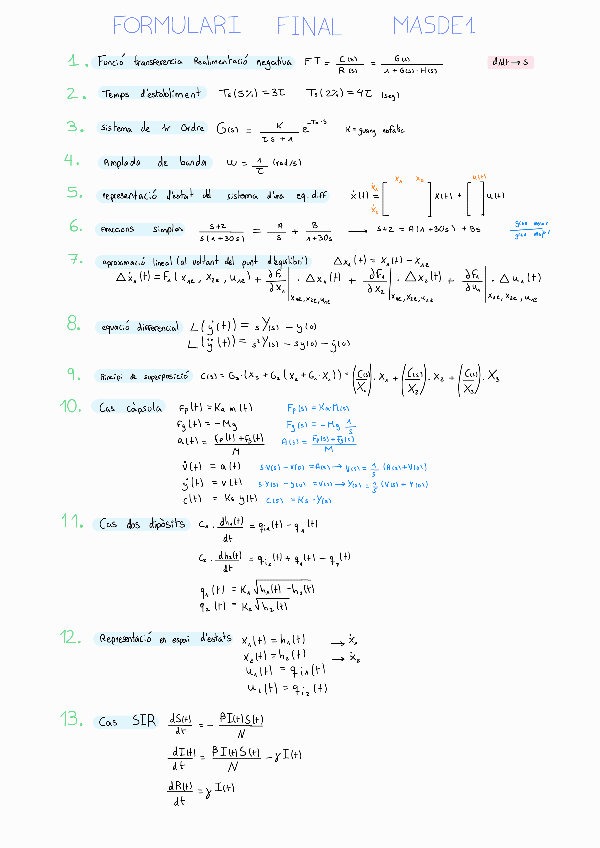 FORMULARI FINAL MASDE1
1. Funció transferencia Realimentació negativa FT = C(s)/R(s) = G(s)/(1+G(s)·H(s)) d/dt → s
2. Temps d'establiment Ts(5%) = 3τ Ts(2%) = 4τ (seg)
3. sistema de 1r Ordre G(s) = K/(τs+1) e^-To·s K = guany estàtic
4. Amplada de banda ω = 1/τ (rad/s)
5. representació d'estat del sistema d'eq. diff ẋ(t) = [ ] x(t) + [ ] u(t) ẋ₁ ẋ₂ x₁ x₂ u(t)
6. Fraccions simples (s+2)/(s(1+30s)) = A/s + B/(1+30s) → s+2 = A(1+30s) + Bs
7. aproximació lineal (al voltant del punt d'equilibri) Δx₁(t) = x₁(t) - x₁e
Δẋ₁(t) = F₁(x₁e, x₂e, u₁e) + ∂F₁/∂x₁|x₁e,x₂e,u₁e · Δx₁(t) + ∂F₁/∂x₂|x₁e,x₂e,u₁e · Δx₂(t) + ∂F₁/∂u₁|x₁e,x₂e,u₁e · Δu₁(t)
8. equació differencial L(ẏ(t)) = sY(s) - y(0)
L(ÿ(t)) = s²Y(s) - sy(0) - ẏ(0)
9. Principi de superposició C(s) = G₃·(X₃ + G₂(X₂ + G₁·X₁)) = (C(s)/X₁)·X₁ + (C(s)/X₂)·X₂ + (C(s)/X₃)·X₃
10. Cas càpsula Fp(t) = Ka m(t) Fp(s) = Ka M(s)
Fg(t) = -Mg Fg(s) = -Mg 1/s
a(t) = (Fp(t)+Fg(t))/M A(s) = (Fp(s)+Fg(s))/M
v̇(t) = a(t) sV(s) - v(0) = A(s) → V(s) = 1/s (A(s)+V(0))
ẏ(t) = v(t) sY(s) - y(0) = V(s) → Y(s) = 1/s (V(s)+Y(0))
c(t) = Ks y(t) C(s) = Ks·Y(s)
11. Cas dos dipòsits C₁·dh₁(t)/dt = qi₁(t) - q₁(t)
C₂·dh₂(t)/dt = qi₂(t) + q₁(t) - q₂(t)
q₁(t) = K₁√(h₁(t)-h₂(t))
q₂(t) = K₂√h₂(t)
12. Representació en espai d'estats x₁(t) = h₁(t) → ẋ₁
x₂(t) = h₂(t) → ẋ₂
u₁(t) = qi₁(t)
u₁(t) = qi₂(t)
13. Cas SIR dS(t)/dt = - βI(t)S(t)/N
dI(t)/dt = βI(t)S(t)/N - γI(t)
dR(t)/dt = γI(t)